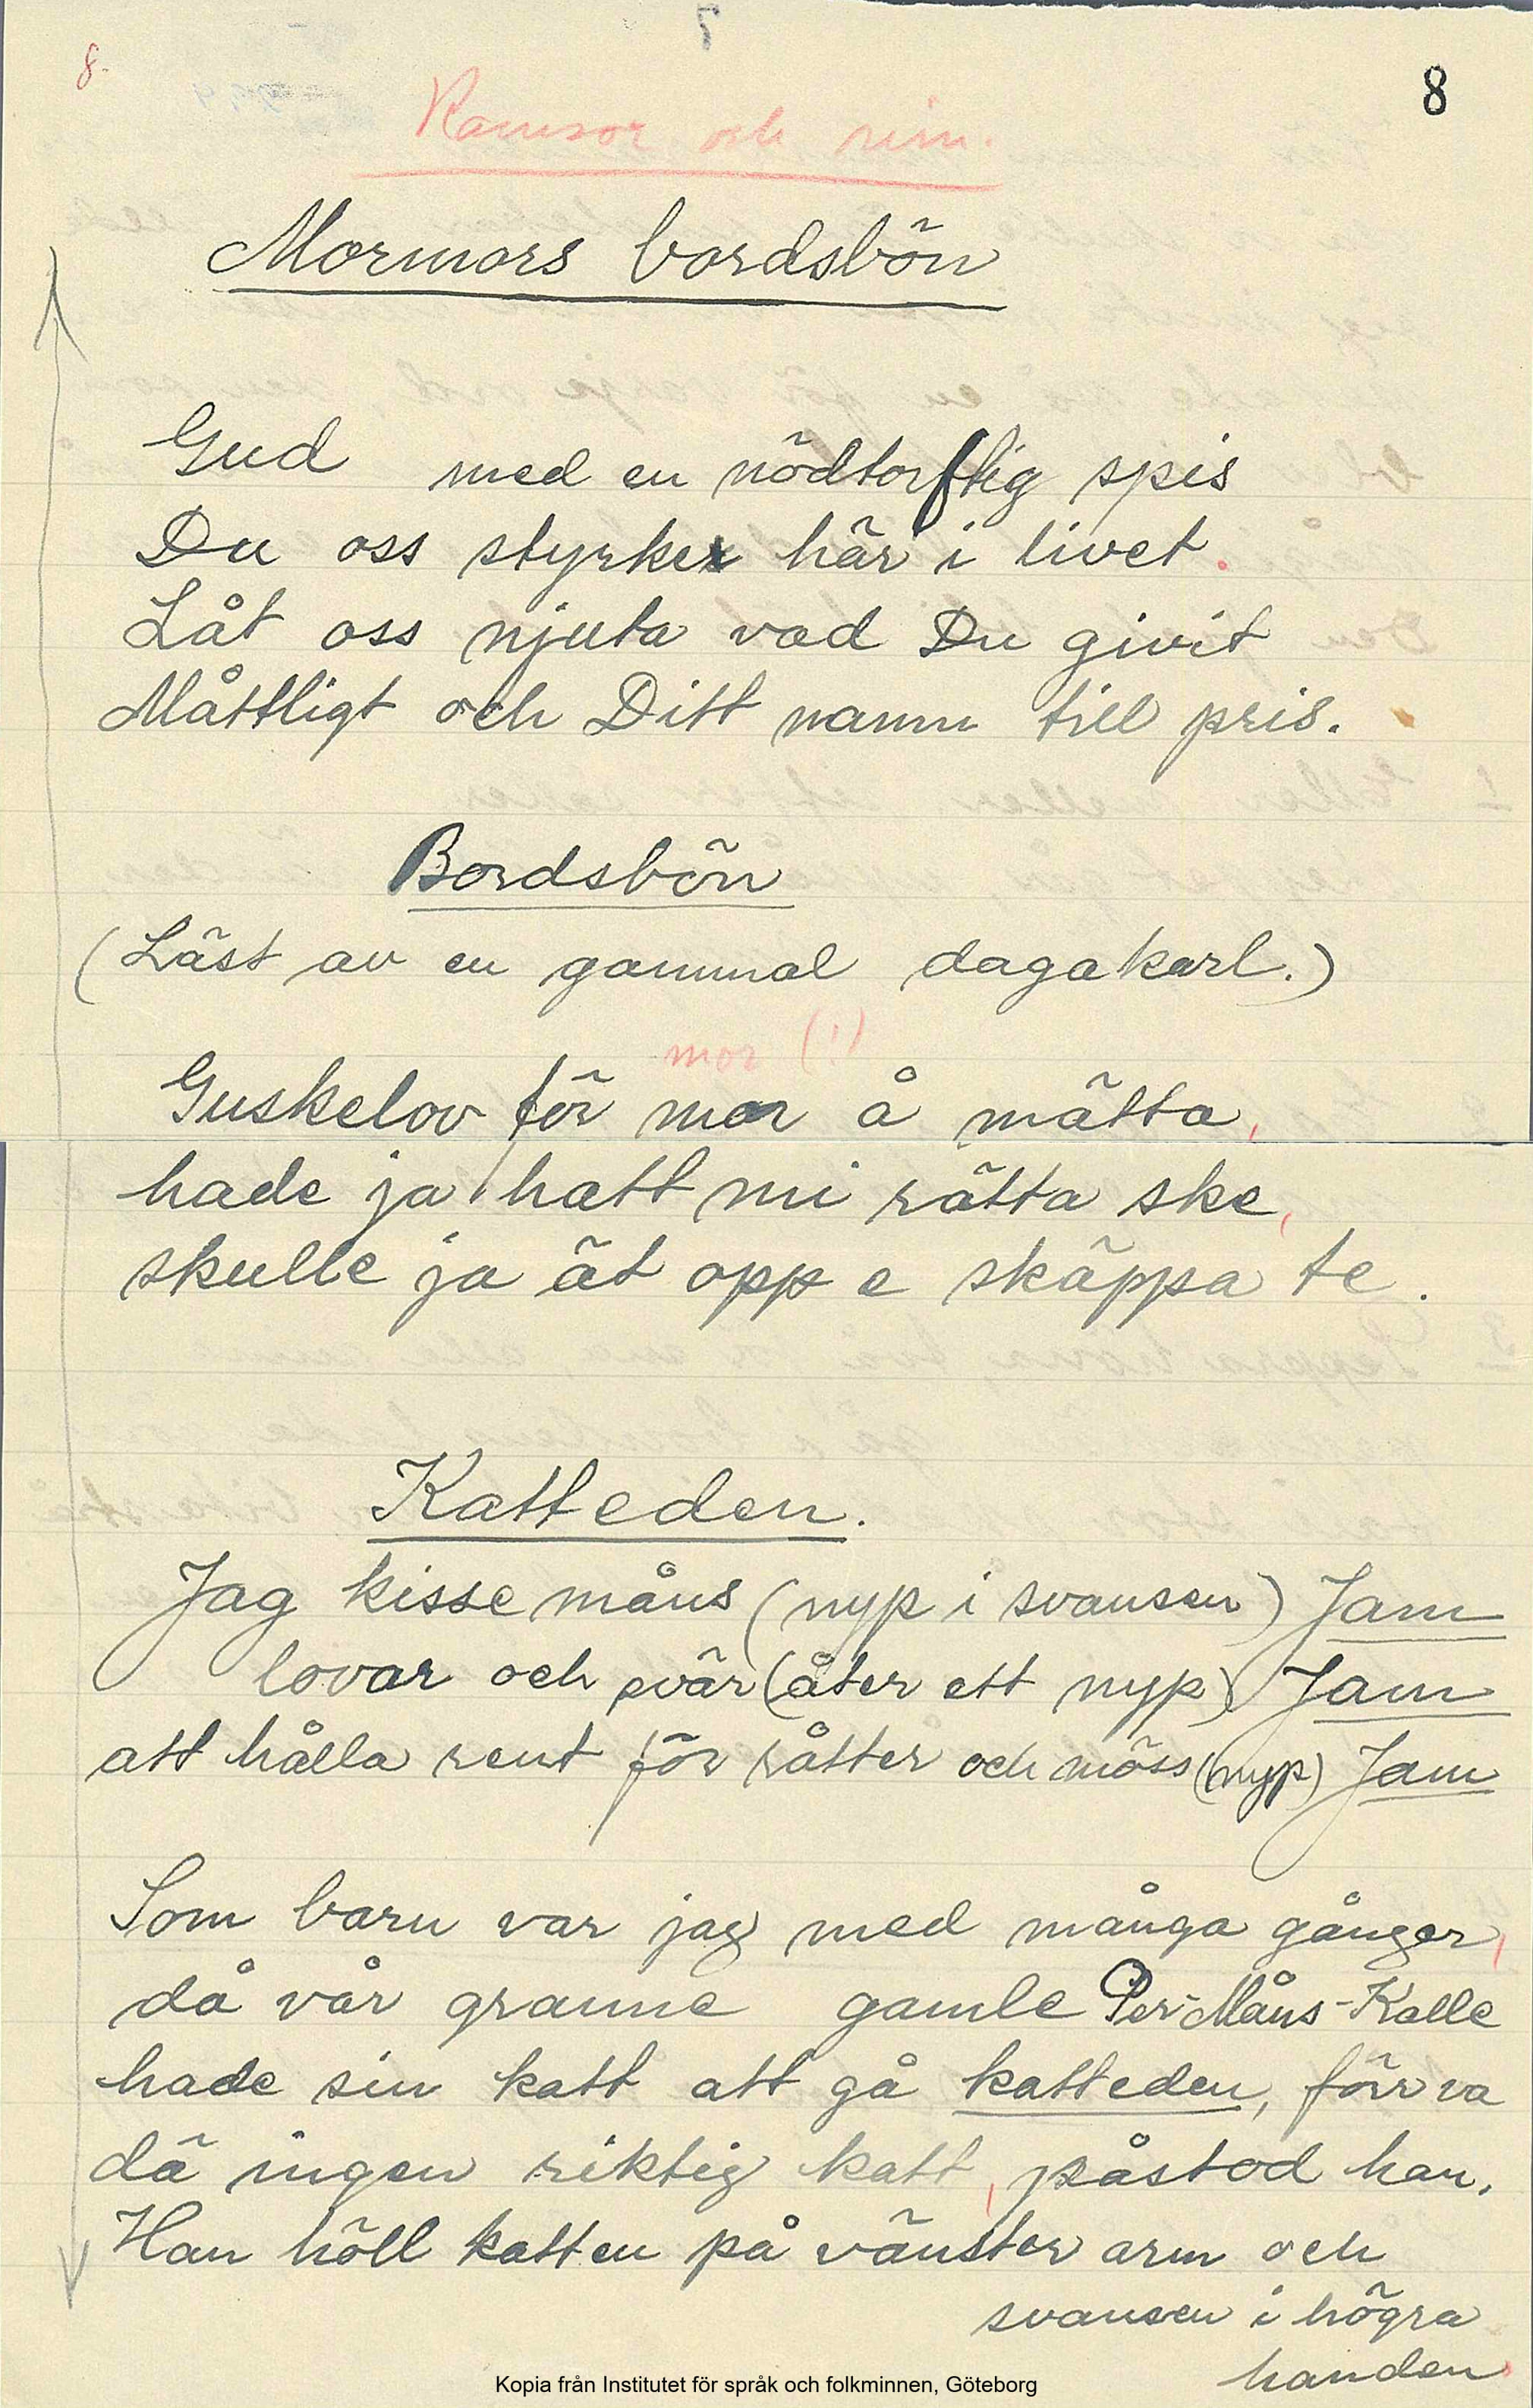 8.
8
Ramsor och rim.
Mormors bordsbön
Gud med en nödtorftig spis
Du oss styrker här i livet.
Låt oss njuta vad Du givit
Måttligt och Ditt namn till pris.
Bordsbön
(Läst av en gammal dagakarl.)
mor (!)
Guskelov för mor å mätta,
hade ja hatt mi rätta ske,
skulle ja ät opp e skäppa te.
Katteden.
Jag kisse måns (nyp i svansen) Jam
lovar och svär (åter ett nyp) Jam
att hålla rent för råtter och möss (nyp) Jam
Som barn var jag med många gånger,
då vår granne gamle Per-Måns-Kalle
hade sin katt att gå katteden, förr va
dä ingen riktig katt, påstod han.
Han höll katten på vänster arm och
svansen i högra
handen
Kopia från Institutet för språk och folkminnen, Göteborg